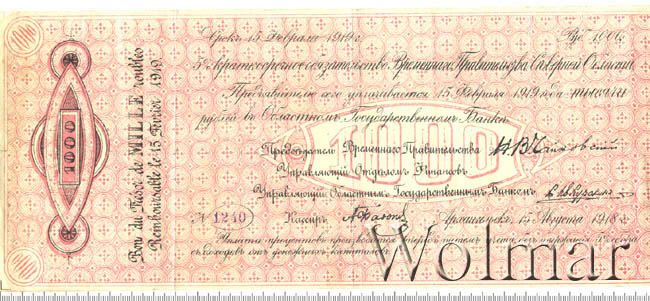 Срокъ 15 Февраля 1919 г. Руб. 1000.
5% краткосрочное обязательство Временнаго Правительства Северной Области
Предъявителю сего уплачивается 15 Февраля 1919 года тысячу
рублей в Областномъ Государственномъ Банке
1000
Председатель Временнаго Правительства
Управляющий Отделомъ Финансовъ
Управляющий Областнымъ Государственнымъ Банкомъ
N 1240 Кассиръ Архангельскъ, 15 Августа 1918 г.
Уплата процентовъ производится впередъ путемъ учета, без удержания сбора
съ доходовъ отъ денежныхъ капиталовъ
Bon du Trésor de MILLE roubles
Remboursable le 15 Février 1919
1000
Wolmar